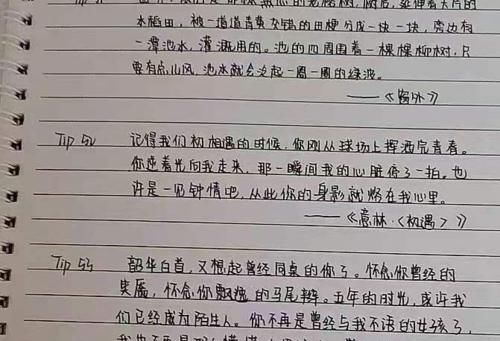 水稻田，被一道道青黄交错的田梗分成一块一块，旁边有
一潭池水，灌溉用的。池的四周围着一棵棵柳树，只
要有点儿风，池水就会炎起一圈一圈的绿波。
——《窗外》
Tip 52 记得我们初相遇的时候，你刚从球场上挥洒完青春。
你逆着光向我走来，那一瞬间我的心脏停了一拍。也
许是一见钟情吧，从此你的身影就烙在我心里。
——《意林·〈初遇〉》
Tip 53 韶华白首，又想起曾经同桌的你了。怀念你曾经的
笑靥，怀念你飘逸的马尾辫。五年的时光，或许我
们已经成为陌生人。你不再是曾经与我不语的女孩了，